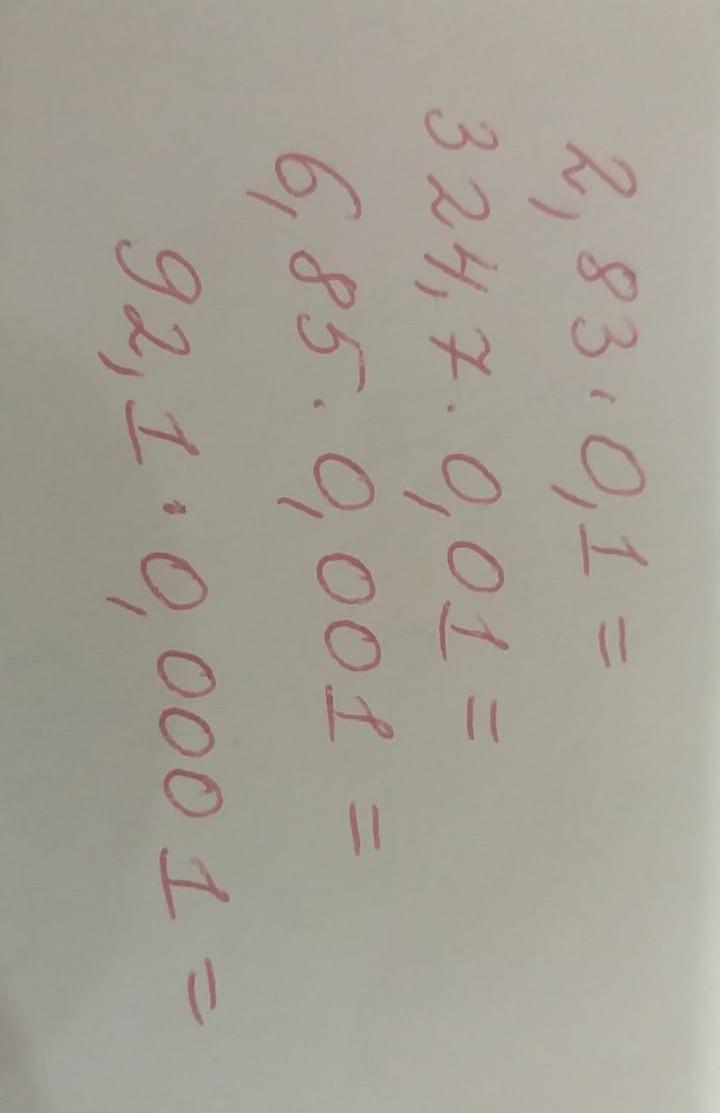 2,83·0,1=
324,7·0,01=
6,85·0,001=
92,1·0,0001=